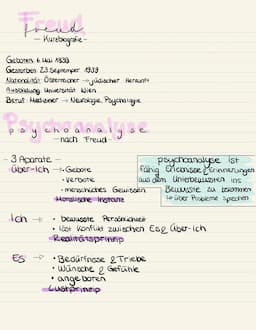 Freud
- Kurzbiografie -
Geboren: 6. Mai 1856
Gestorben: 23. September 1939
Nationalität: Österreicher → jüdischer Herkunft
Ausbildung: Universität Wien
Beruf: Mediziner → Neurologie, Psychologie
Psychoanalyse
- nach Freud -
3 Aparate -
Über-Ich → • Gebote
• Verbote
• menschliches Gewissen
Moralische Instanz
psychoanalyse ist
Fähig Erlebnisse & Erinnerungen
aus dem Unterbewussten ins
Bewusste zu bekommen
↳ über Probleme sprechen
Ich → • bewusste Persönlichkeit
• löst Konflikt zwischen Es & Über-Ich
Realitätsprinzip
Es → • Bedürfnisse & Triebe
• Wünsche & Gefühle
• angeboren
Lustprinzip